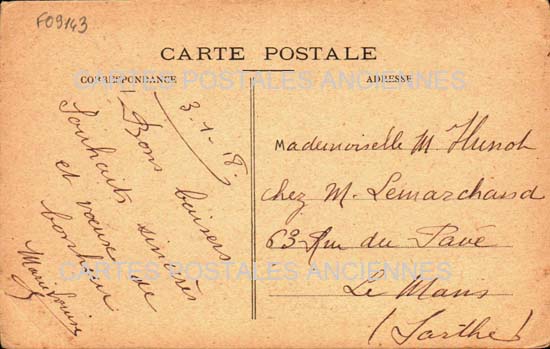 F09143
CARTE POSTALE
CORRESPONDANCE
ADRESSE
CARTES POSTALES ANCIENNES
3-1-18.
Bons baisers
Souhaits sincères
et voeux de
bonheur
Marie Louise
Mademoiselle M. Hunot
chez M. Lemarchand
63 Rue du Pavé
Le Mans
(Sarthe)
CARTES POSTALES ANCIENNES